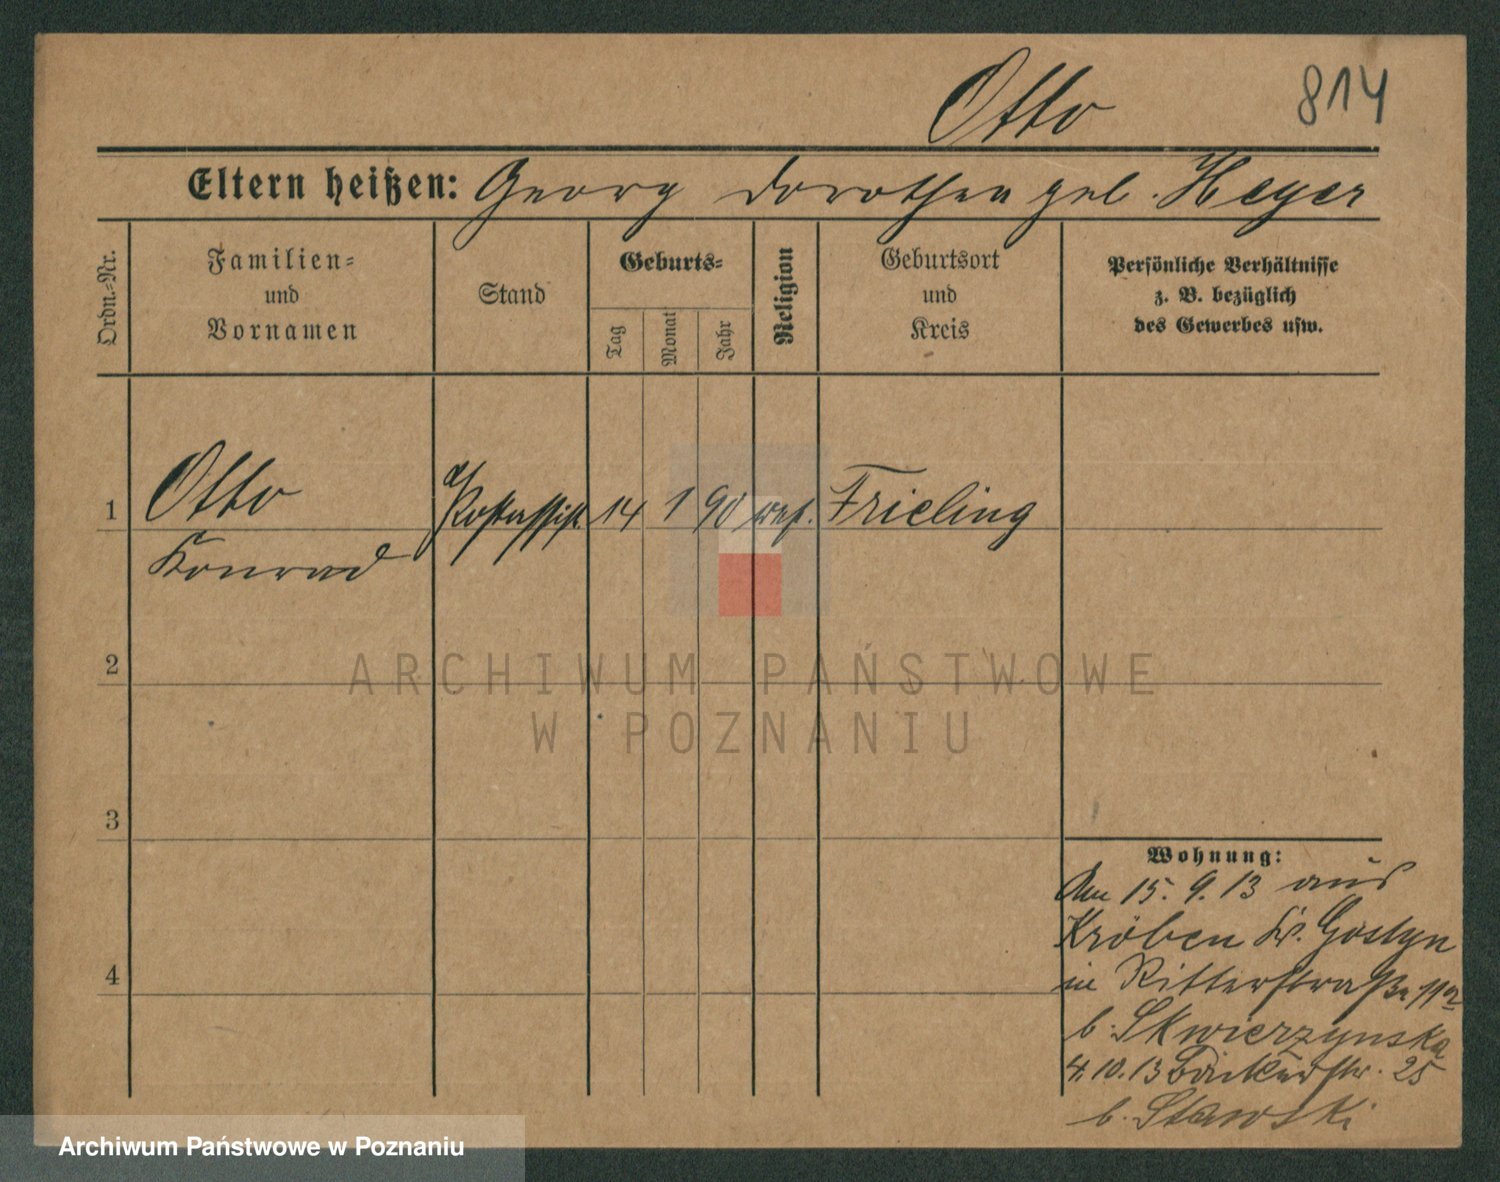 Otto
814
Eltern heißen: Georg Dorothea geb. Heyer
Ordn.-Nr.
Familien-
und
Vornamen
Stand
Geburts-
Tag
Monat
Jahr
Religion
Geburtsort
und
Kreis
Persönliche Verhältnisse
z. B. bezüglich
des Gewerbes usw.
1 Otto Postassist. 14 1 90 ref. Frieling
Konrad
2
ARCHIWUM PAŃSTWOWE
W POZNANIU
3
Wohnung:
Am 15. 9. 13 aus
Kröben Kr. Gostyn
in Ritterstraße 11a
b. Skwierzynska
4
4. 10. 13 Bäckerstr. 25
b. Stawski
Archiwum Państwowe w Poznaniu